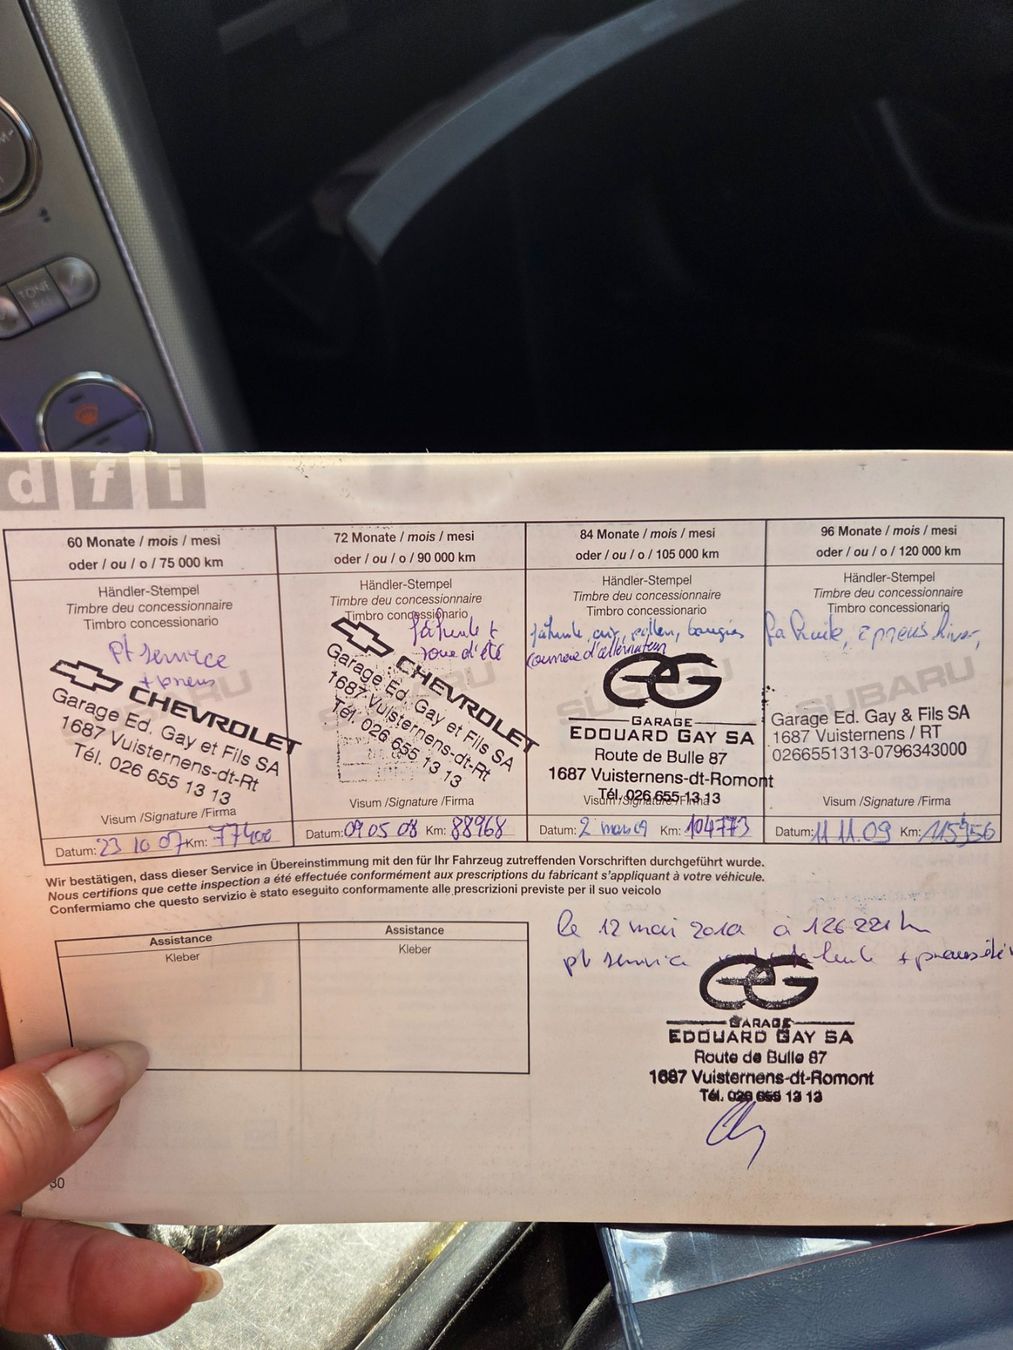 TONE
dfi
60 Monate / mois / mesi
oder / ou / o / 75 000 km
Händler-Stempel
Timbre deu concessionnaire
Timbro concessionario
pt service
+ pneus
SUBARU
CHEVROLET
Garage Ed. Gay et Fils SA
1687 Vuisternens-dt-Rt
Tél. 026 655 13 13
Visum /Signature /Firma
Datum: 23 10 07 Km: 77400
72 Monate / mois / mesi
oder / ou / o / 90 000 km
Händler-Stempel
Timbre deu concessionnaire
Timbro concessionario
roue d'été
CHEVROLET
Garage Ed. Gay et Fils SA
1687 Vuisternens-dt-Rt
Tél. 026 655 13 13
Visum /Signature /Firma
Datum: 09 05 08 Km: 88968
84 Monate / mois / mesi
oder / ou / o / 105 000 km
Händler-Stempel
Timbre deu concessionnaire
Timbro concessionario
bougies
courroie d'alternateur
SUBARU
GARAGE
EDOUARD GAY SA
Route de Bulle 87
1687 Vuisternens-dt-Romont
Tél. 026 655 13 13
Visum /Signature /Firma
Datum: 2 mars 09 Km: 104773
96 Monate / mois / mesi
oder / ou / o / 120 000 km
Händler-Stempel
Timbre deu concessionnaire
Timbro concessionario
pneus hiver,
SUBARU
Garage Ed. Gay & Fils SA
1687 Vuisternens / RT
0266551313-0796343000
Visum /Signature /Firma
Datum: 11 11.09 Km: 115956
Wir bestätigen, dass dieser Service in Übereinstimmung mit den für Ihr Fahrzeug zutreffenden Vorschriften durchgeführt wurde.
Nous certifions que cette inspection a été effectuée conformément aux prescriptions du fabricant s'appliquant à votre véhicule.
Confermiamo che questo servizio è stato eseguito conformamente alle prescrizioni previste per il suo veicolo
Assistance
Kleber
Assistance
Kleber
le 12 mai 2010 à 126221 km
pt service + pneus été
GARAGE
EDOUARD GAY SA
Route de Bulle 87
1687 Vuisternens-dt-Romont
Tél. 026 655 13 13
30